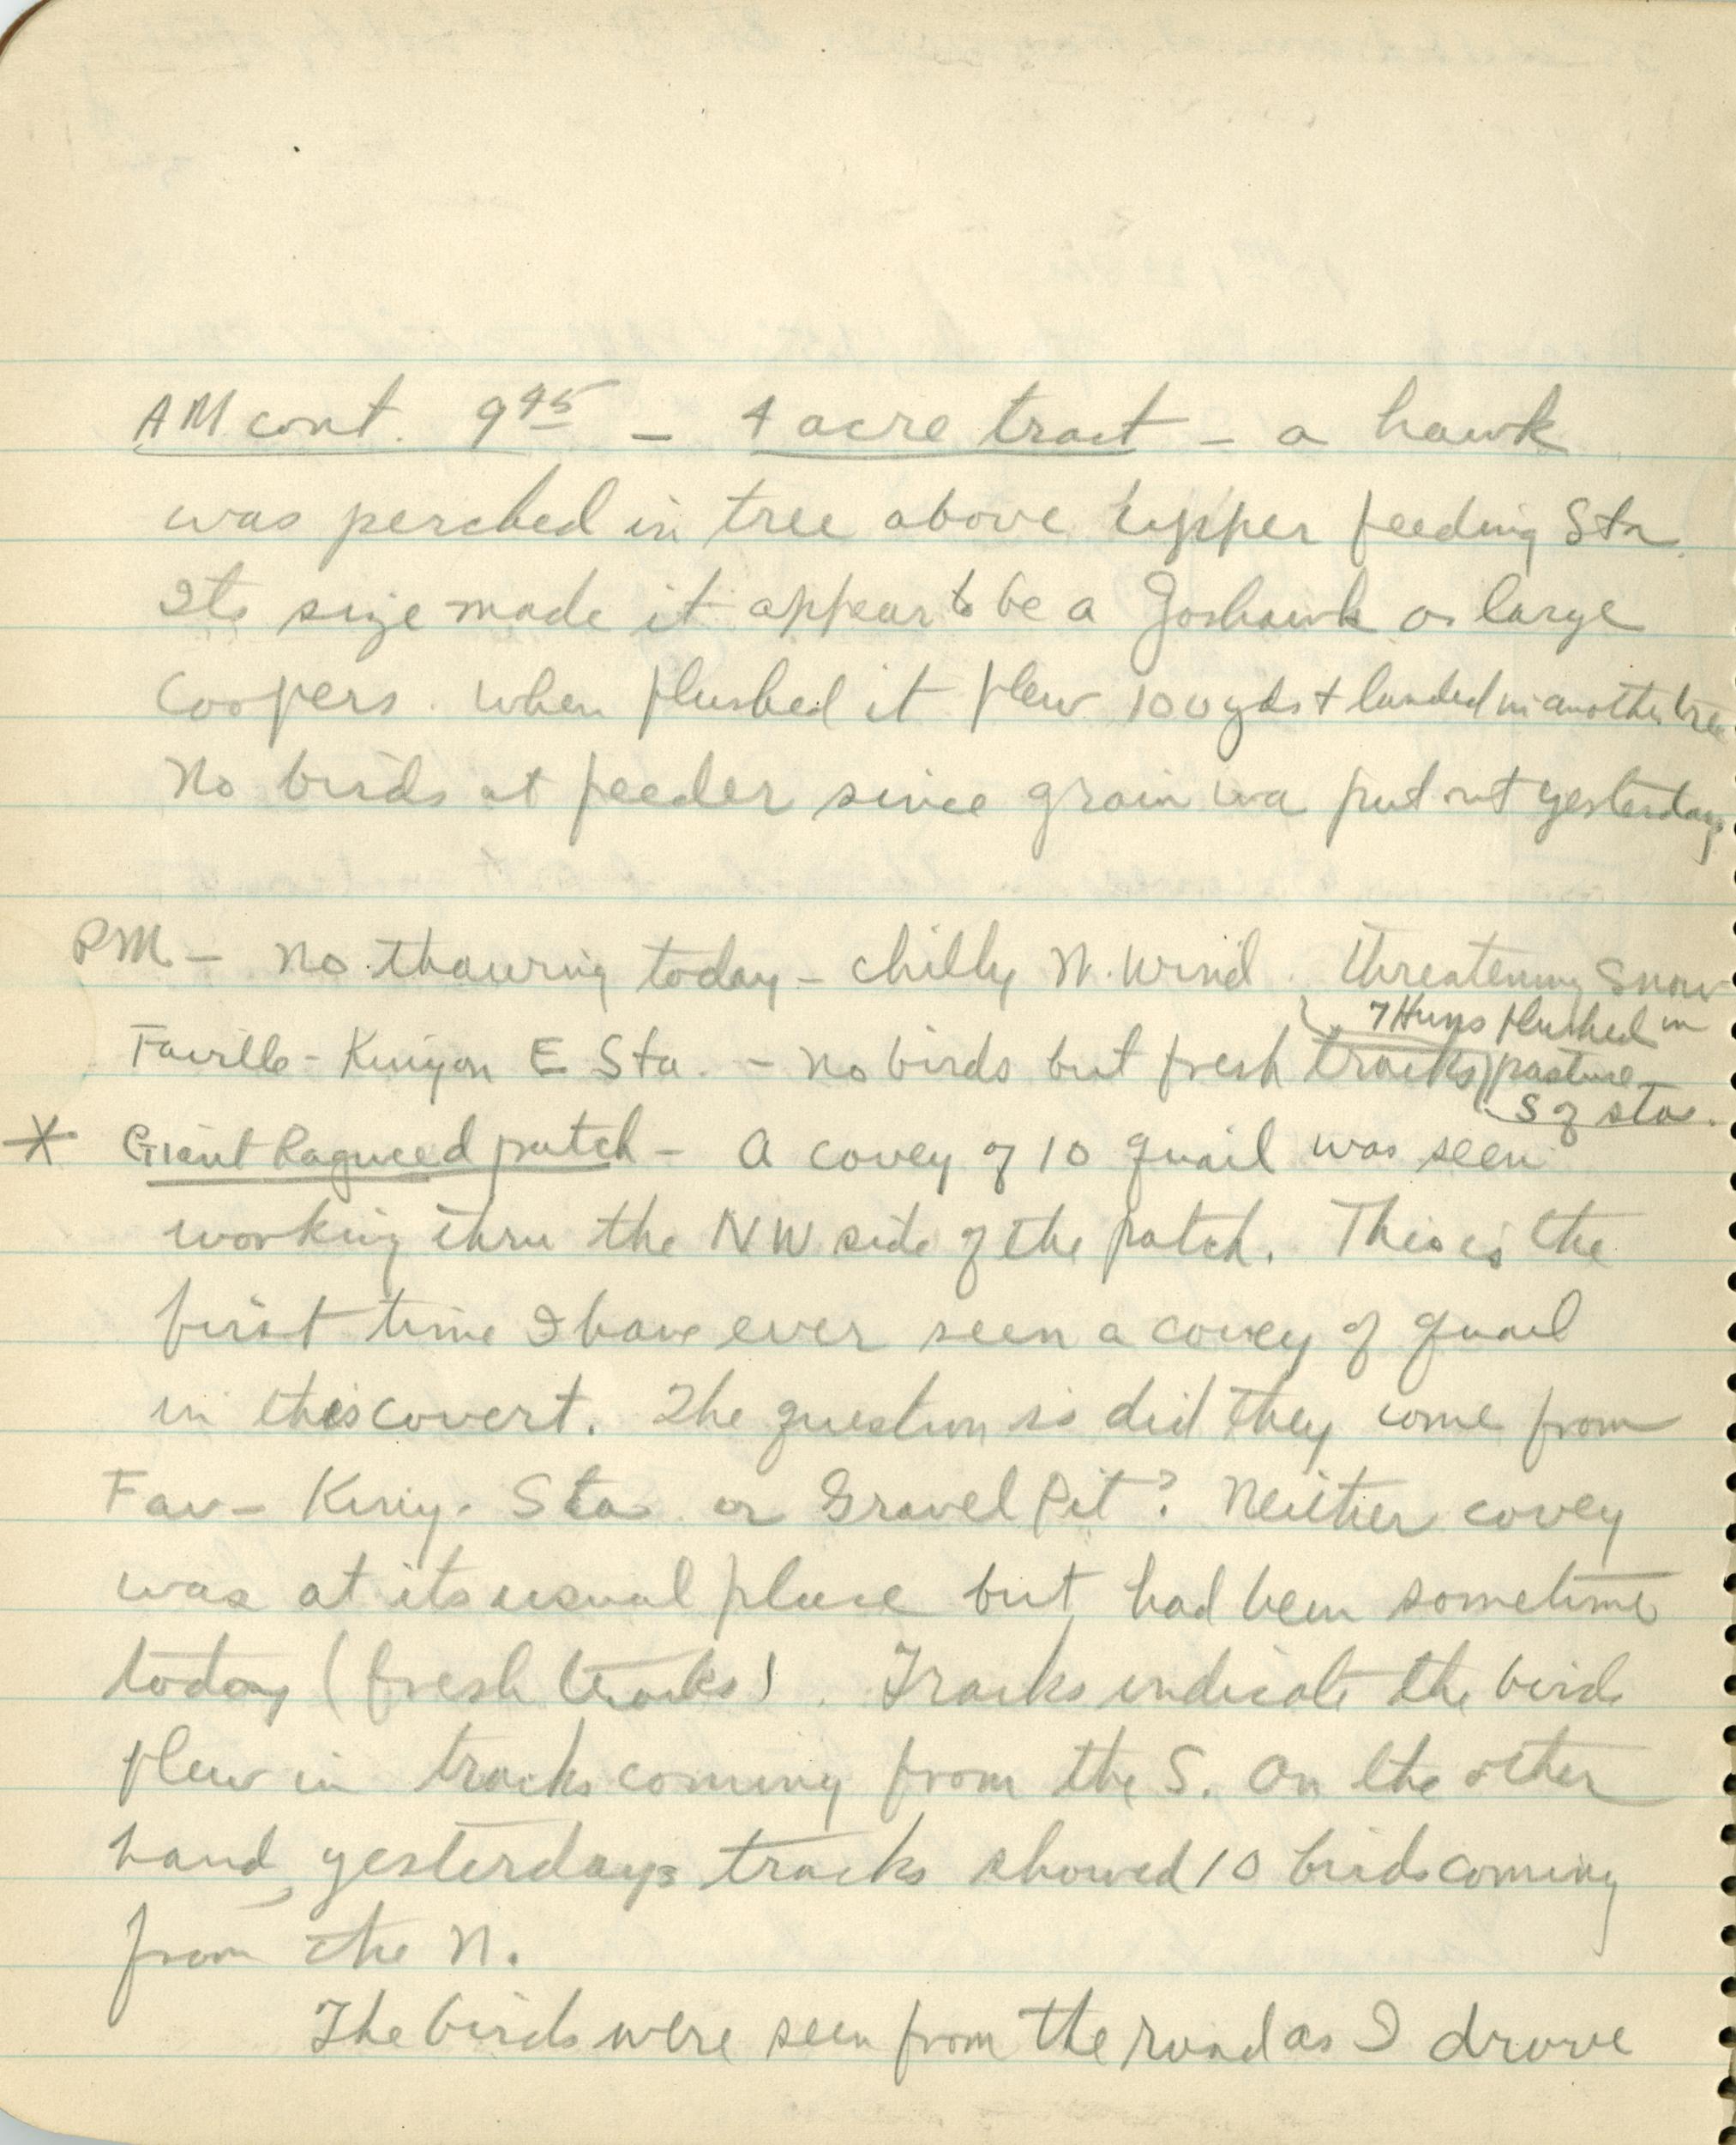 AM cont. 9 45 – 4 acre tract – a hawk
was perched in tree above upper feeding Sta.
Its size made it appear to be a Goshawk or large
Coopers. When flushed it flew 100 yds + landed in another tree
No birds at feeder since grain wa put out yesterday
PM – No thawing today – chilly N. Wind. Threatening snow
7 Huns flushed in
Faville - Kinyon E Sta. – no birds but fresh tracks) pasture
S of sta.
* Giant Ragweed patch – A covey of 10 quail was seen
working thru the NW side of the patch. This is the
first time I have ever seen a covey of quail
in this covert. The question is did they come from
Fav – Kiny. Sta or Gravel Pit? Neither covey
was at its usual place but had been sometime
today (fresh tracks). Tracks indicate the birds
flew in tracks coming from the S. On the other
hand, yesterdays tracks showed 10 birds coming
from the N.
The birds were seen from the road as I drove